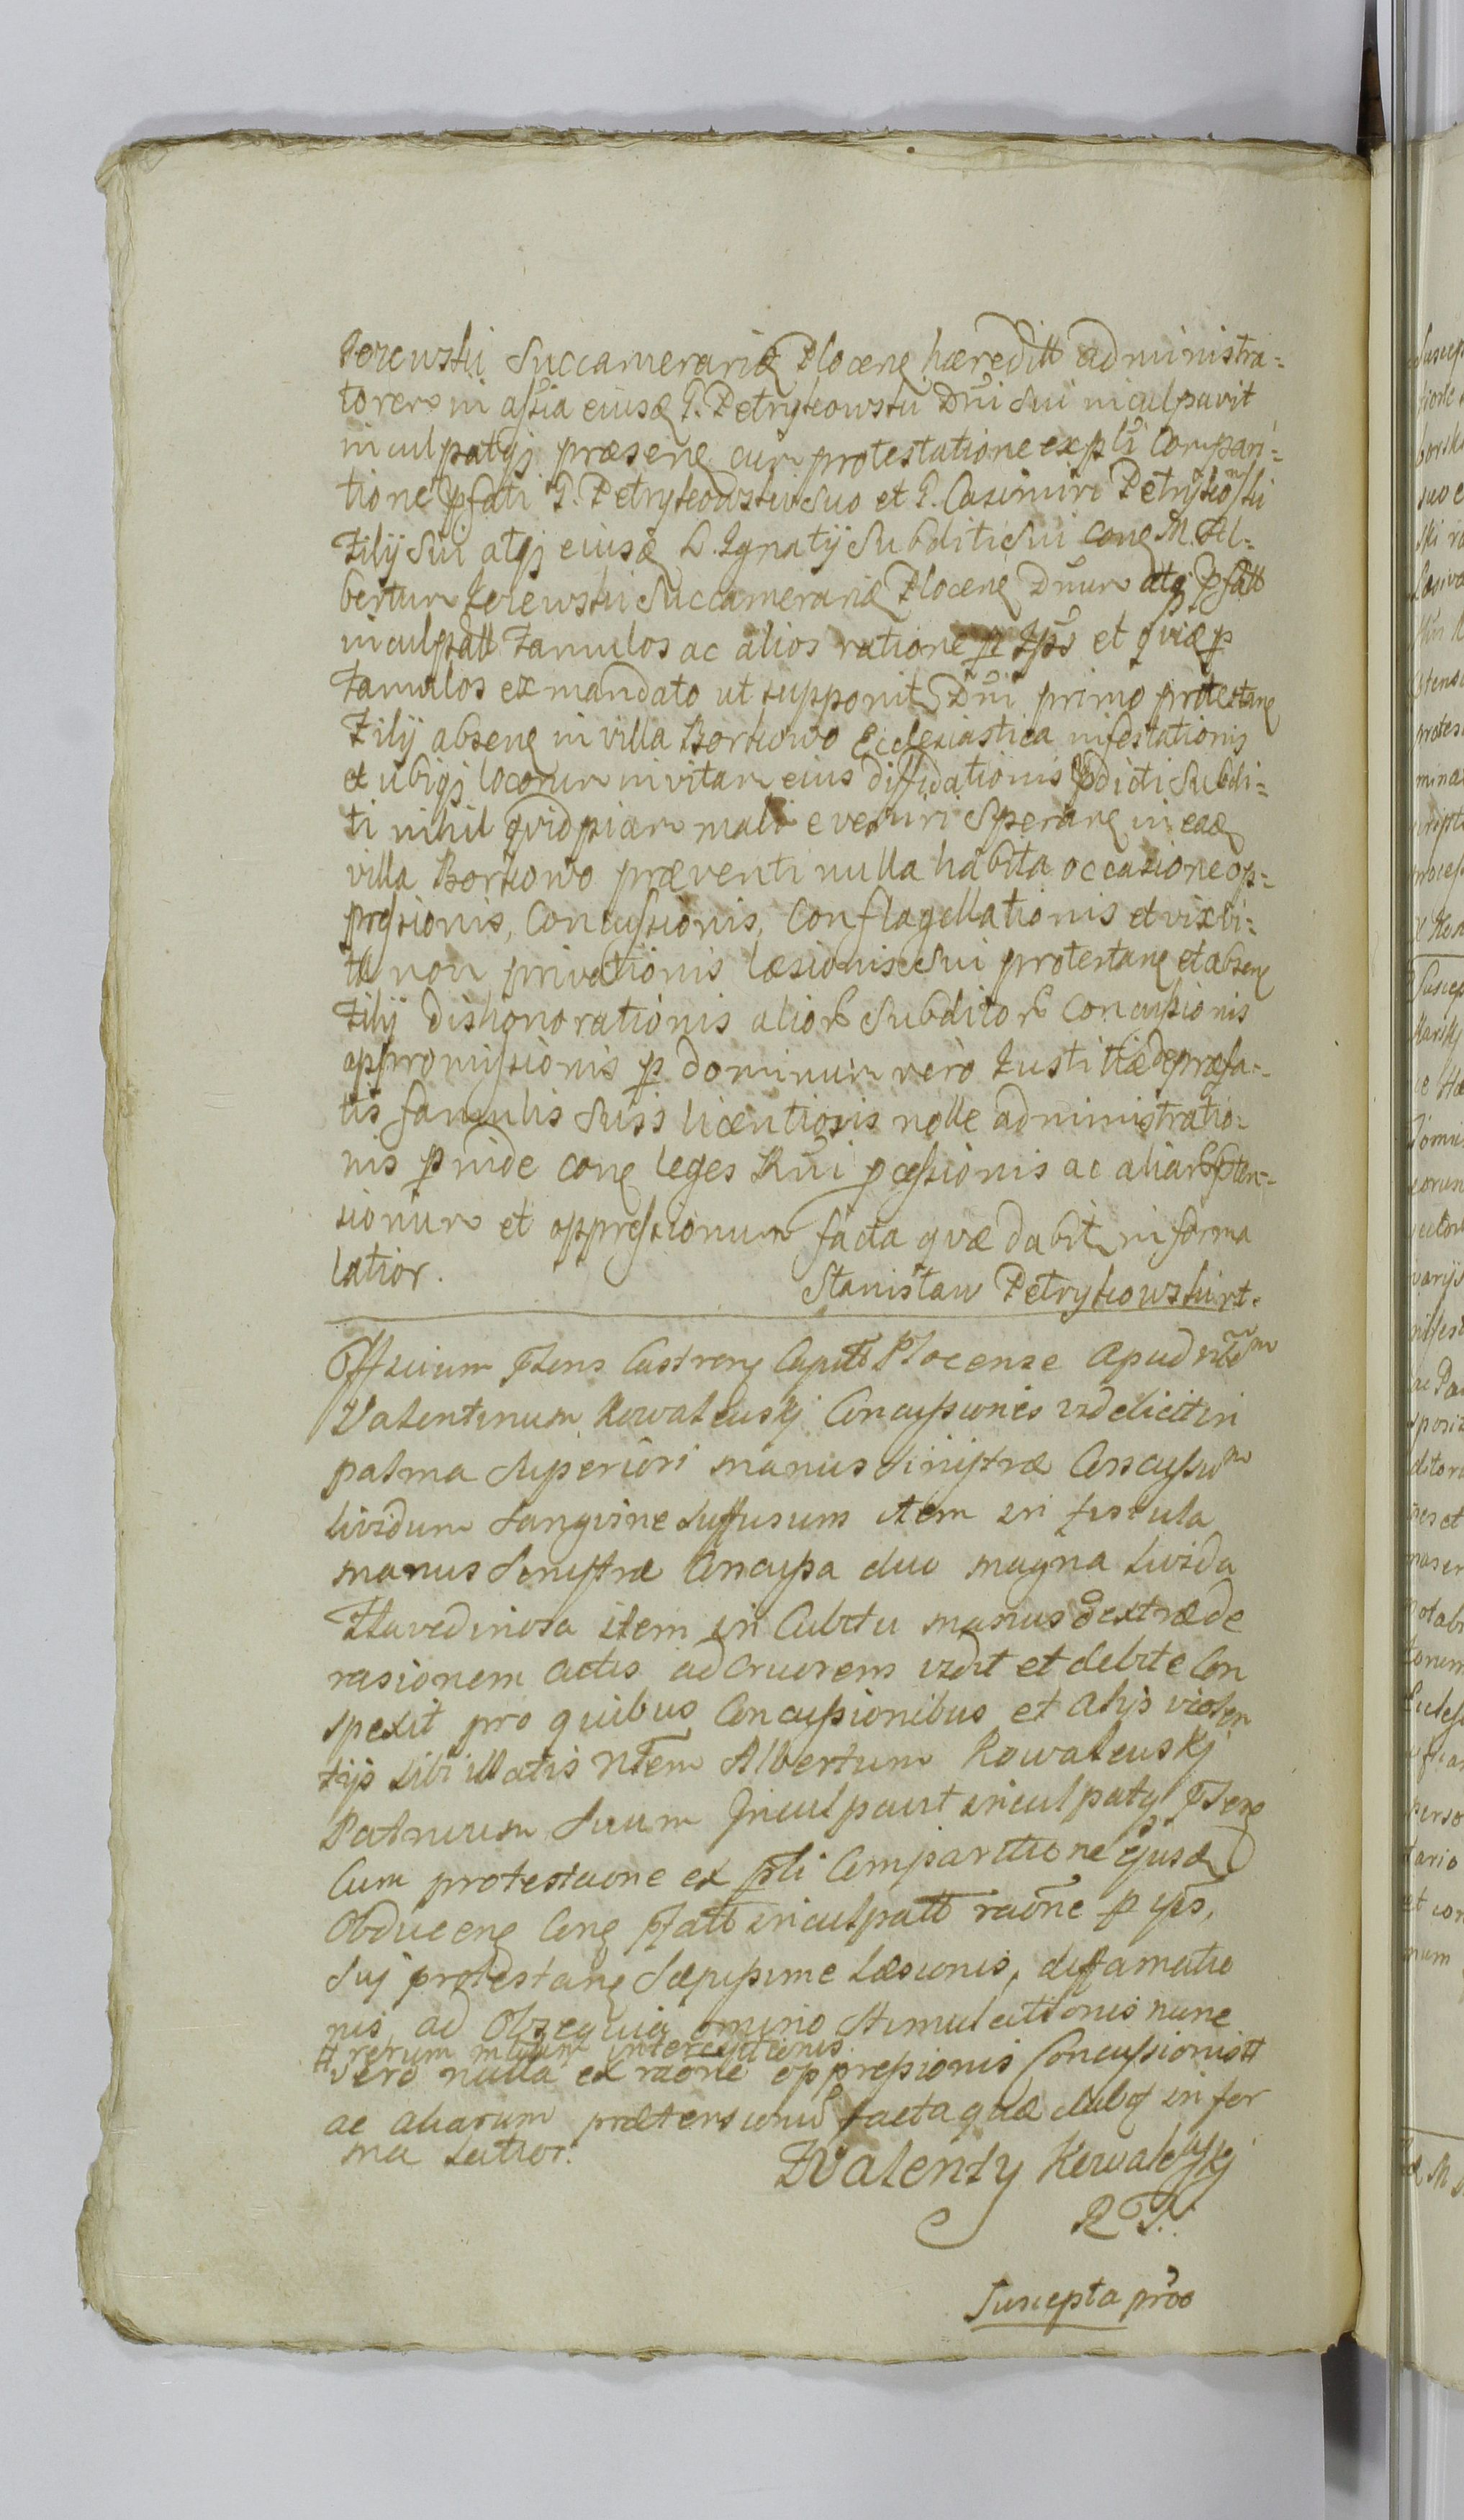 Succamerarię Plocenę hæreditt administra-
torem in assia eiusdę G. Petrykowski Dñi Sui inculpavit
inculpatqȝ præsenę cum protestatione ex pñti Compari-
tione pfati G. Petrykowski Suo et G. Casimiri Petrykowski
Filij Sui atqȝ eiusdę L. Ignatij Subditi Sui conę M. Al-
bertum Succamerarię Plocenę Dñum atqȝ pfatt
inculpatt Famulos ac alios ratione p Ipš et quæ p
Famulos ex mandato ut supponit Dñi primo protestanę
Filij absenę in villa Borkowo Ecclesiastica infestationis
et ubiqȝ locorum in vitam eius diffidationis pdicti Subdi-
ti nihil quidpiam mali eveniri Speranę in eadę
villa Borkowo præventi nulla habita occasione op-
pressionis, Concussionis, Conflagellationis et vix vi-
ta non privationis læsionis Sui protestanę et absenę
Filij dishonorationis alior Subditor Concussionis
appromissionis p dominum vero Iustitiæ de præfa-
tis famulis Suis licentiosis nolle administratio-
nis pinde conę leges Rñi pcessionis ac aliar pten-
sionum et oppressionum facta quæ dabit in forma
latior.
Stanisław Petrykowski rt.
Officium Pñens Castrenę Capitt Plocense Apud
Valentinum Kowalewskj Concussiones videlicet in
palma Superiori manus Sinistræ Concussum
lividum Sanguine Suffusum item in fistula
manus Sinistræ Concussa duo magna livida
Flavedinosa item in Cubitu manus dextræ de
rasionem cutis ad Cruorem vidit et debite Con
spexit pro quibus Concussionibus et alijs violen
tijs Sibi illatis Ntem Albertum Kowalewskj
Patruum Suum Inculpavit inculpatqȝ Pñenę
Cum protestaone ex pñti Comparitione ejusdę
Obducenę Conę Pfatt inculpatt raõne p ipš,
Suj protestanę Sæpissime Læsionis, diffamatio
nis, ad Obzequia omnino Stimulationis nunc
# rerum multum interceptionis
vero nulla ex raõne oppressionis Concussionis #
ac aliarum prætensionũ facta quæ dabit in for
ma Latior.
Walenty Kowalewskj
R T.
Suscepta proo